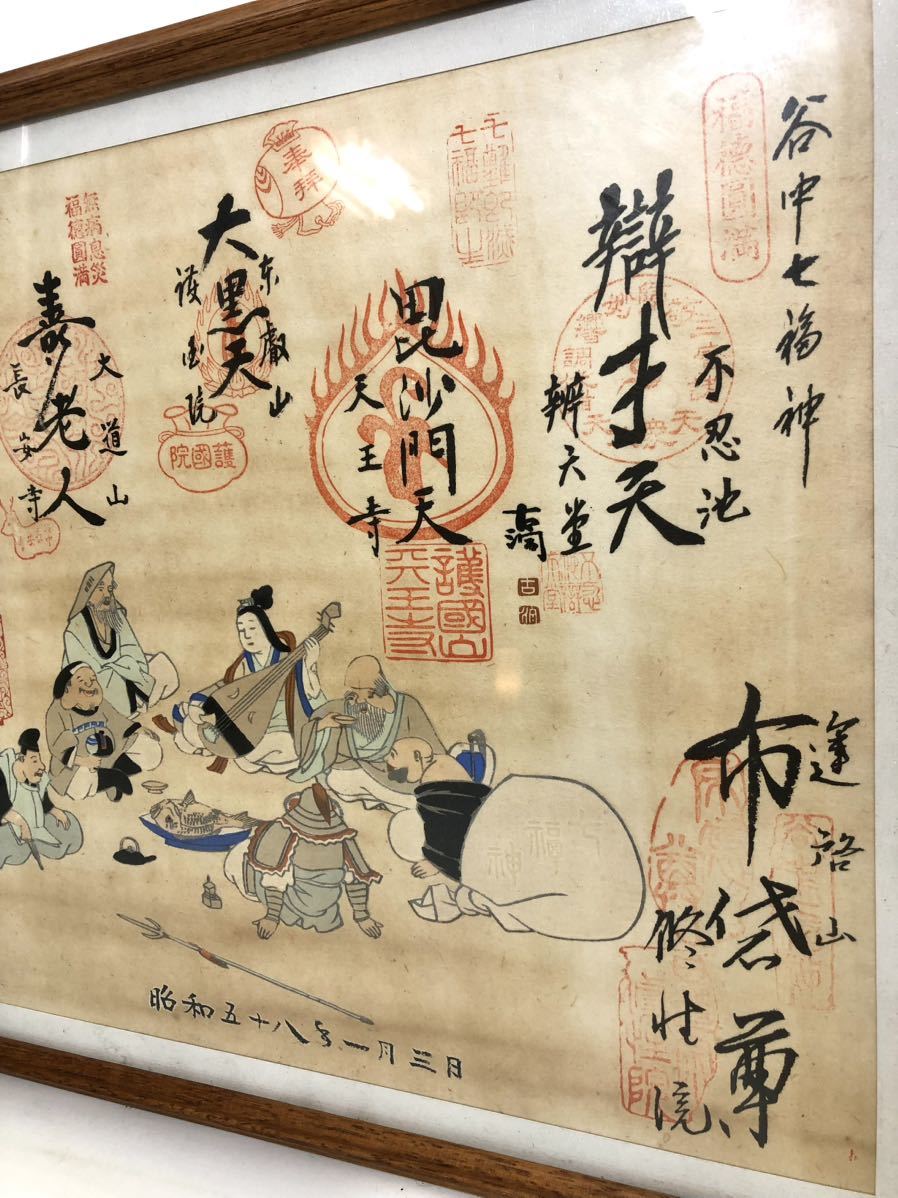 谷中七福神
福德圓滿
不忍池
辯才天
辨天堂
毘沙門天
天王寺
護國山
天王寺
奉拝
東叡山
大黒天
護国院
護國院
無病息災
福德圓満
大道山
寿老人
長安寺
逢詻山
布袋尊
修性院
七福神
昭和五十八年一月三日